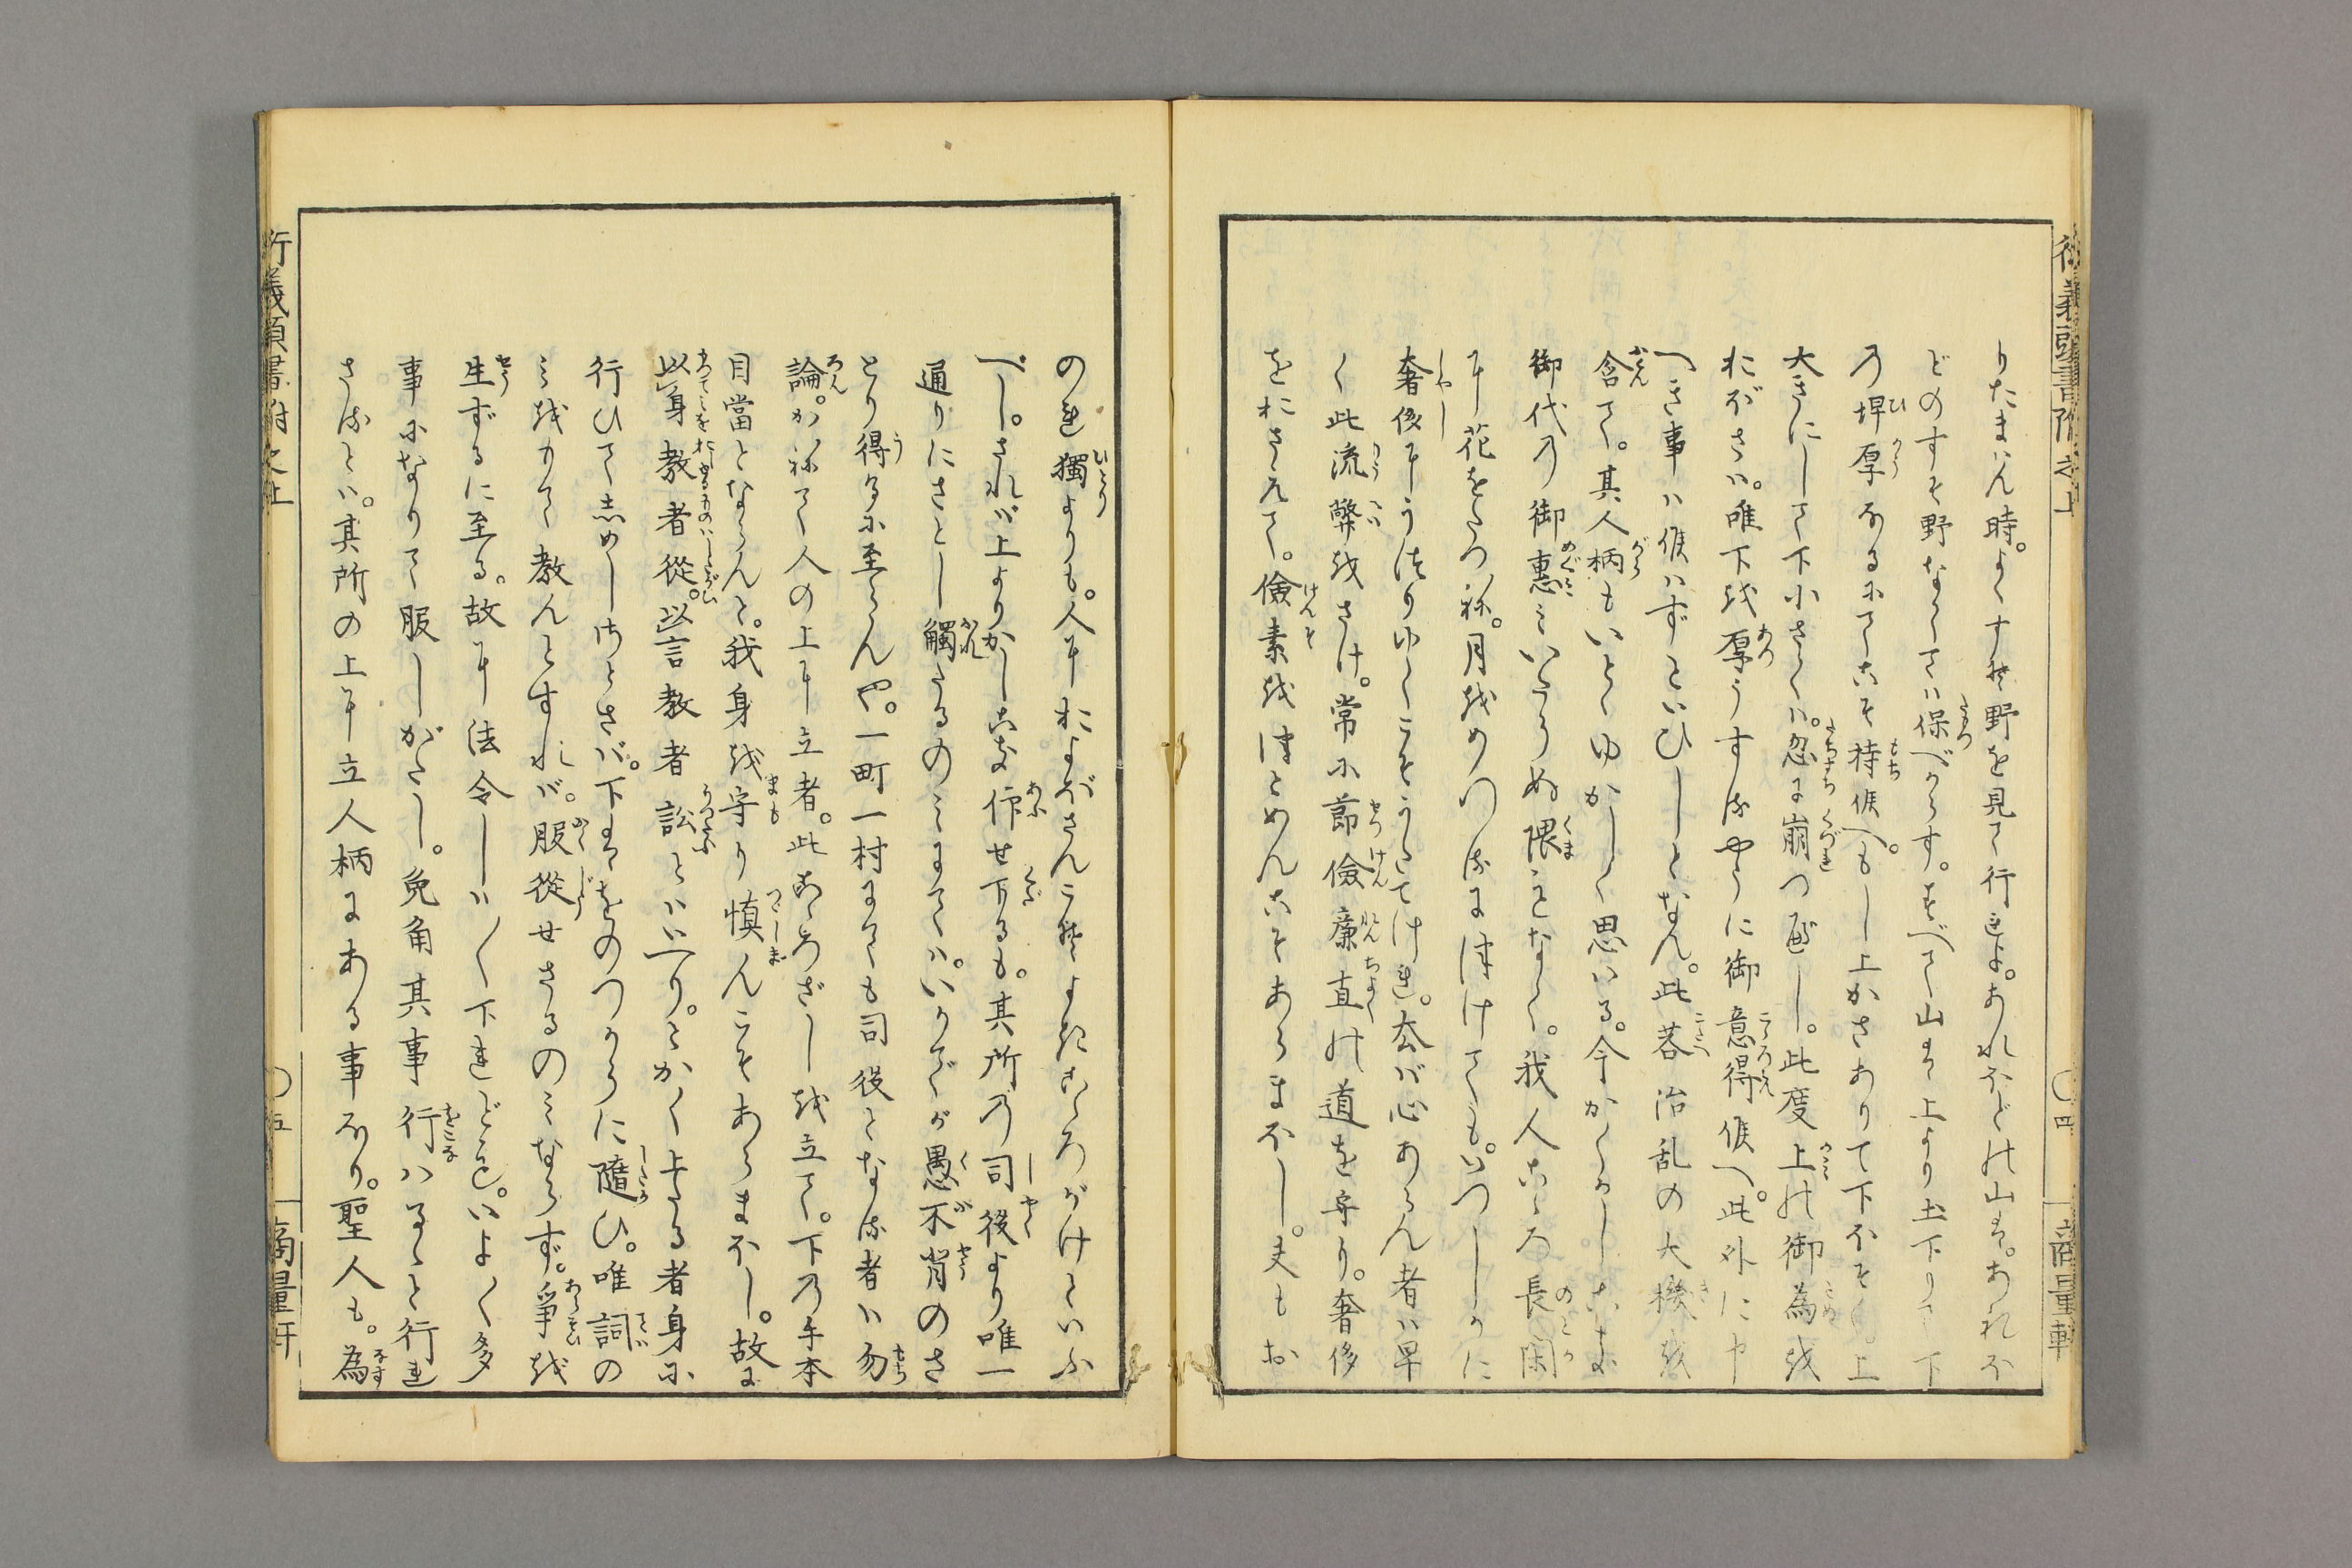 りたまはん時。よくすそ野を見て行れよ。あれほどの山は。あれほ
どのすそ野なくては保べからす。すべて山は上より土下りて下
の埤厚なるにてこそ持候へ。もし上かさありて下ほそく上
大きにして下小さくは。忽に崩つべし。此度上の御為を
おぼさは。唯下を厚うするやうに御意得候へ。此外に申
へき事は候はずといひしとなん。此荅治乱の大機を
含て。其人柄もいとゆかしく思はる。今かくかしこき
御代の御惠みいたらぬ隈もなく。我人こゝろ長閑
に花をたつね。月をめつるにつけても。いつしかに
奢侈にうつりゆくこそうたてけれ。左は心あらん者は早
く此流弊をさけ。常に節儉廉直の道を守り。奢侈
をおさえて。儉素をつとめんこそあらまほし。夫もお
のれ獨よりも。人におよぼさんこそよきこゝろがけといふ
べし。されば上よりかしこき仰せ下るも。其所の司役より唯一
通りにさとし觸たるのみにては。いかでか愚不肖のさ
とり得るに至らんや。一町一村にても司役となる者は勿
論。かねて人の上に立者。此こゝろざしを立て。下の手本
目當とならんと。我身を守り慎んこそあらまほし。故に
以身教者從。以言教者訟とはいへり。とかく上たる者身に
行ひて志めしさとさば。下はをのつからに隨ひ。唯詞の
みをもて教んとすれば。服從せさるのみならず。爭を
生ずるに至る。故に法令しは〱下れども。いよ〱多
事になりて服しがたし。兔角其事行はるゝと行れ
さるとは。其所の上に立人柄にある事なり。聖人も。為
行義頭書附之上
〇四
商量軒
行義頭書附之上
〇五
商量軒